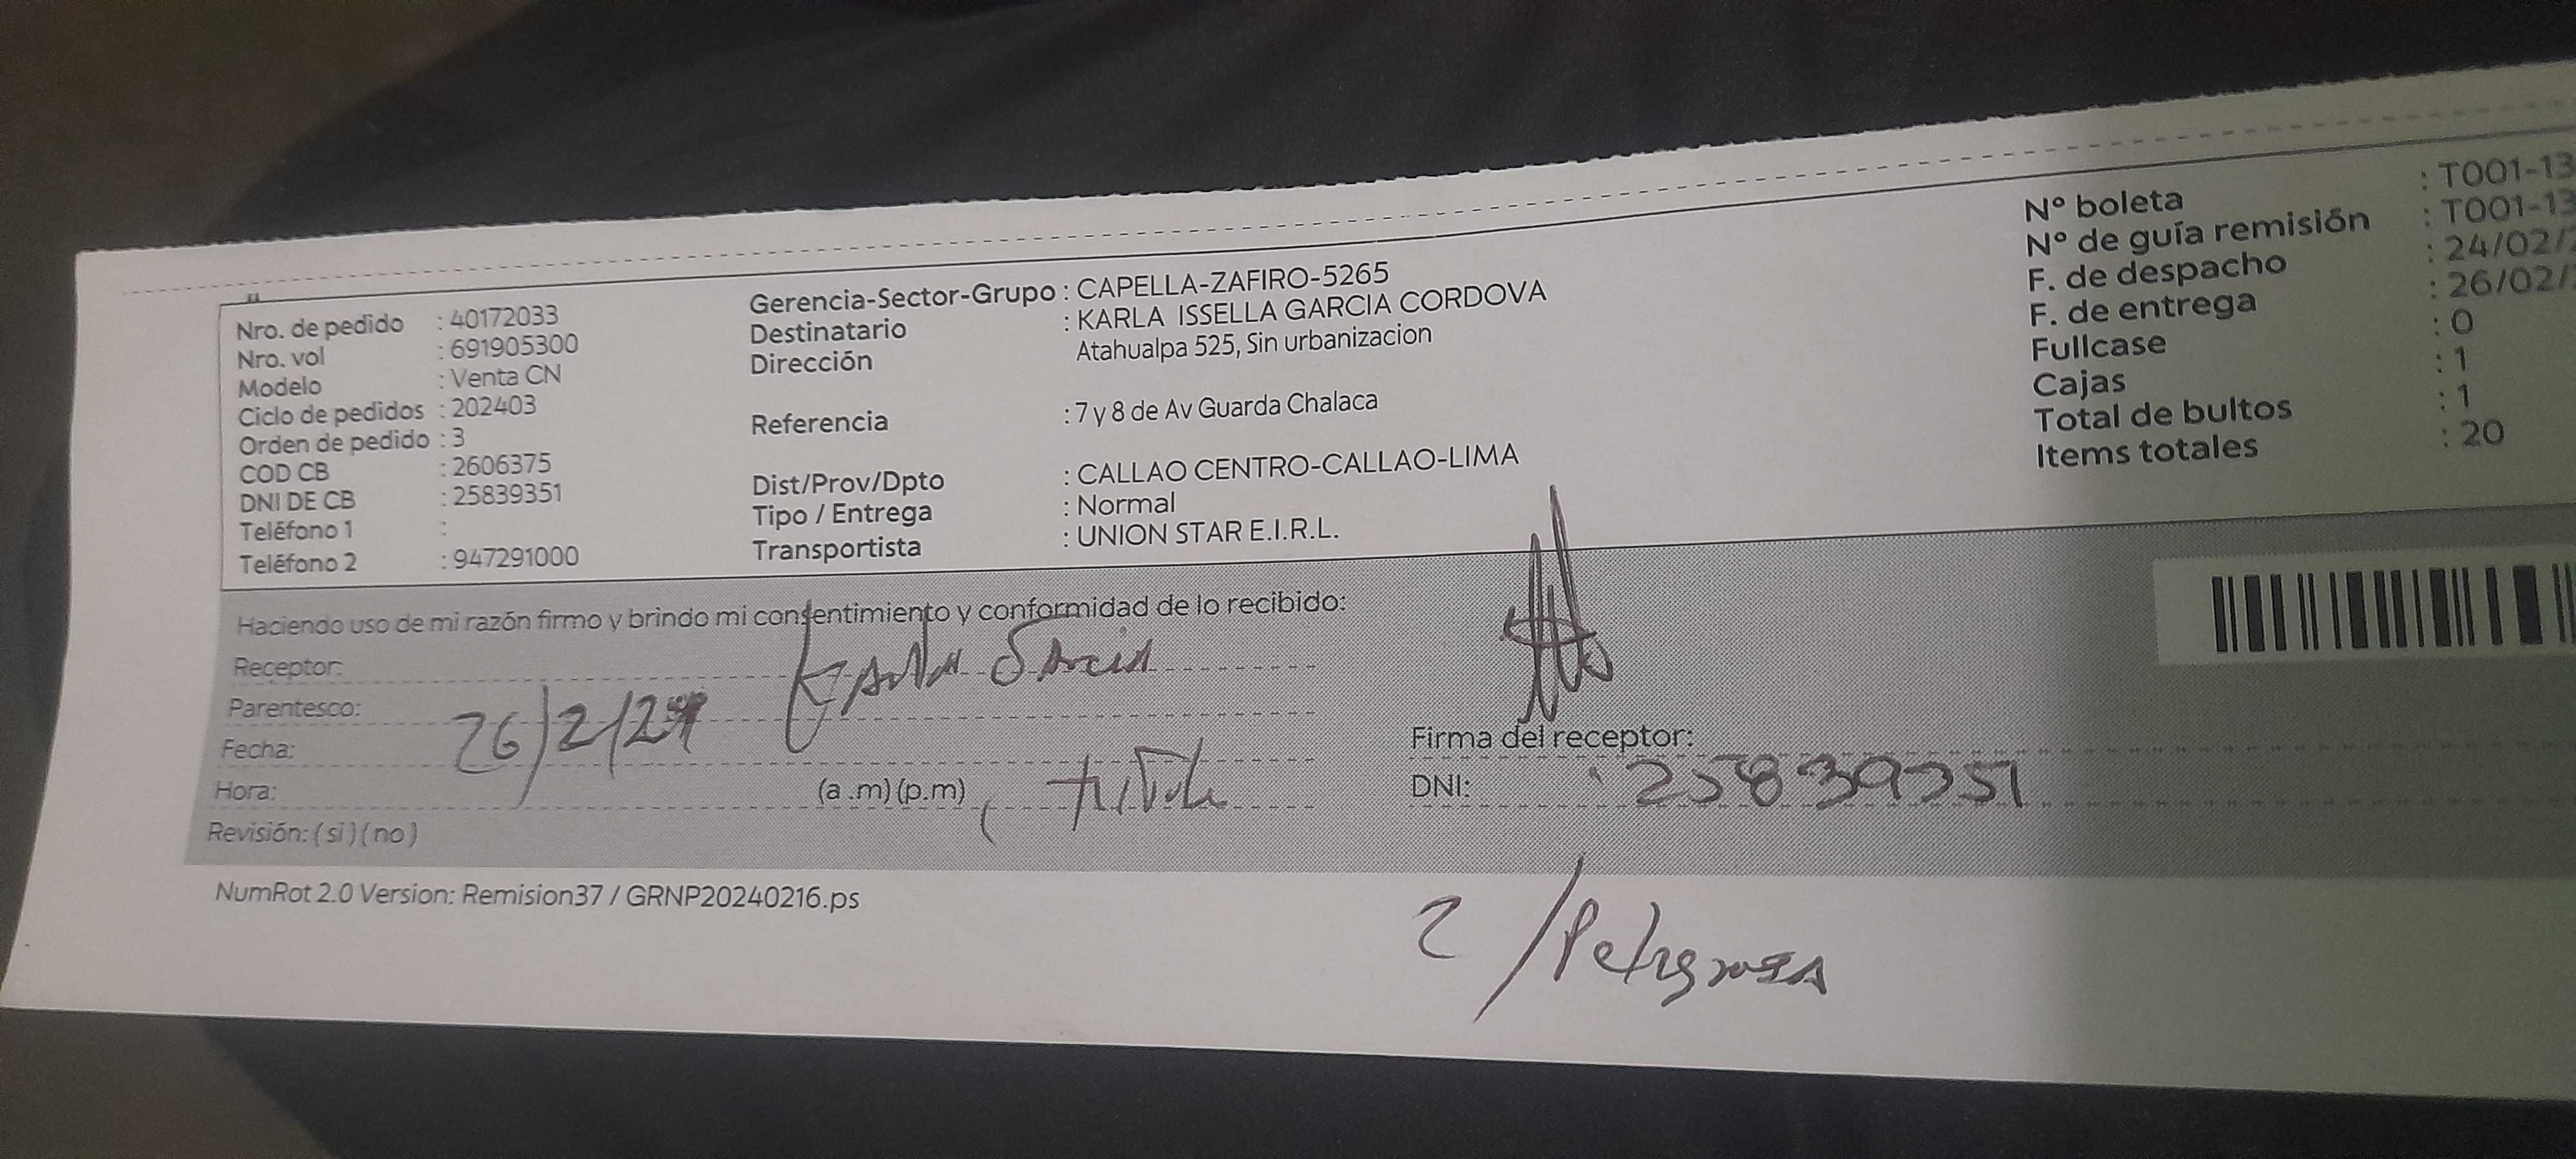 Nro. de pedido : 40172033
Nro. vol : 691905300
Modelo : Venta CN
Ciclo de pedidos : 202403
Orden de pedido : 3
COD CB : 2606375
DNI DE CB : 25839351
Teléfono 1 :
Teléfono 2 : 947291000
Gerencia-Sector-Grupo : CAPELLA-ZAFIRO-5265
Destinatario : KARLA ISSELLA GARCIA CORDOVA
Dirección Atahualpa 525, Sin urbanizacion
Referencia : 7 y 8 de Av Guarda Chalaca
Dist/Prov/Dpto : CALLAO CENTRO-CALLAO-LIMA
Tipo / Entrega : Normal
Transportista : UNION STAR E.I.R.L.
Nº boleta : T001-13
Nº de guía remisión : T001-13
F. de despacho : 24/02/
F. de entrega : 26/02/
Fullcase : 0
Cajas : 1
Total de bultos : 1
Items totales : 20
Haciendo uso de mi razón firmo y brindo mi consentimiento y conformidad de lo recibido:
Receptor: Karla Garcia
Parentesco:
Fecha: 26/2/24
Hora: (a .m) (p.m)
Revisión: ( si ) ( no )
Firma del receptor:
DNI: 25839351
NumRot 2.0 Version: Remision37 / GRNP20240216.ps
2 /